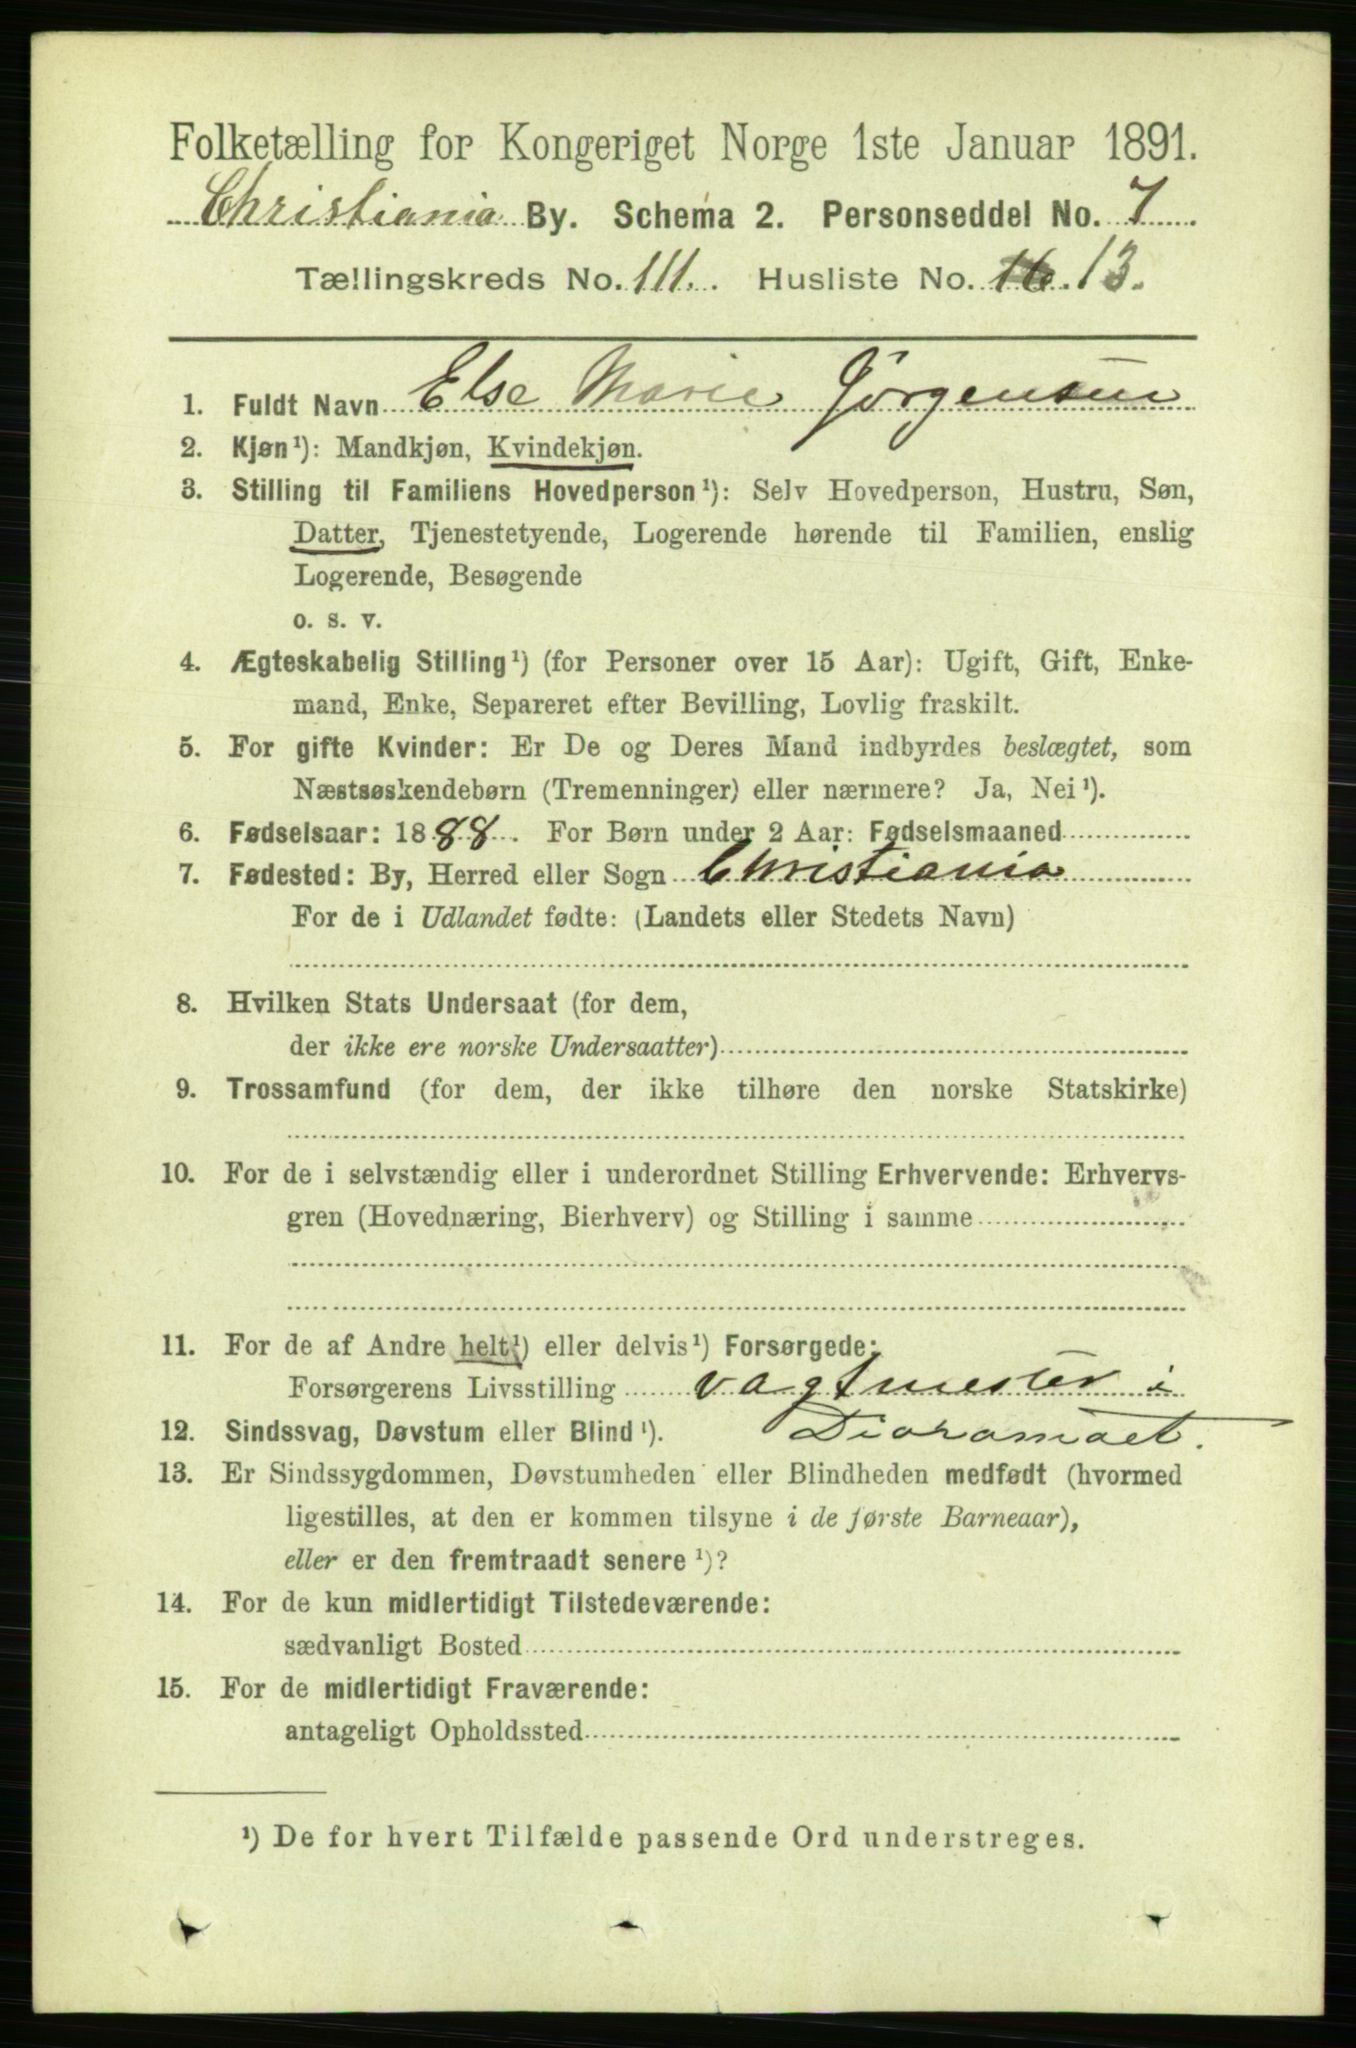 Folketælling for Kongeriget Norge 1ste Januar 1891.
Christiania By. Schema 2. Personseddel No. 7
Tællingskreds No. 111. Husliste No. 16. 13.
1. Fuldt Navn Else Marie Jörgensen
2. Kjøn¹): Mandkjøn, Kvindekjøn.
3. Stilling til Familiens Hovedperson¹): Selv Hovedperson, Hustru, Søn,
Datter, Tjenestetyende, Logerende hørende til Familien, enslig
Logerende, Besøgende
o. s. v.
4. Ægteskabelig Stilling¹) (for Personer over 15 Aar): Ugift, Gift, Enke-
mand, Enke, Separeret efter Bevilling, Lovlig fraskilt.
5. For gifte Kvinder: Er De og Deres Mand indbyrdes beslægtet, som
Næstsøskendebørn (Tremenninger) eller nærmere? Ja, Nei¹).
6. Fødselsaar: 1888. For Børn under 2 Aar: Fødselsmaaned
7. Fødested: By, Herred eller Sogn Christiania
For de i Udlandet fødte: (Landets eller Stedets Navn)
8. Hvilken Stats Undersaat (for dem,
der ikke ere norske Undersaatter)
9. Trossamfund (for dem, der ikke tilhøre den norske Statskirke)
10. For de i selvstændig eller i underordnet Stilling Erhvervende: Erhvervs-
gren (Hovednæring, Bierhverv) og Stilling i samme
11. For de af Andre helt¹) eller delvis¹) Forsørgede:
Forsørgerens Livsstilling vagtmester i
12. Sindssvag, Døvstum eller Blind¹). Dioramaet.
13. Er Sindssygdommen, Døvstumheden eller Blindheden medfødt (hvormed
ligestilles, at den er kommen tilsyne i de første Barneaar),
eller er den fremtraadt senere¹)?
14. For de kun midlertidigt Tilstedeværende:
sædvanligt Bosted
15. For de midlertidigt Fraværende:
antageligt Opholdssted
¹) De for hvert Tilfælde passende Ord understreges.